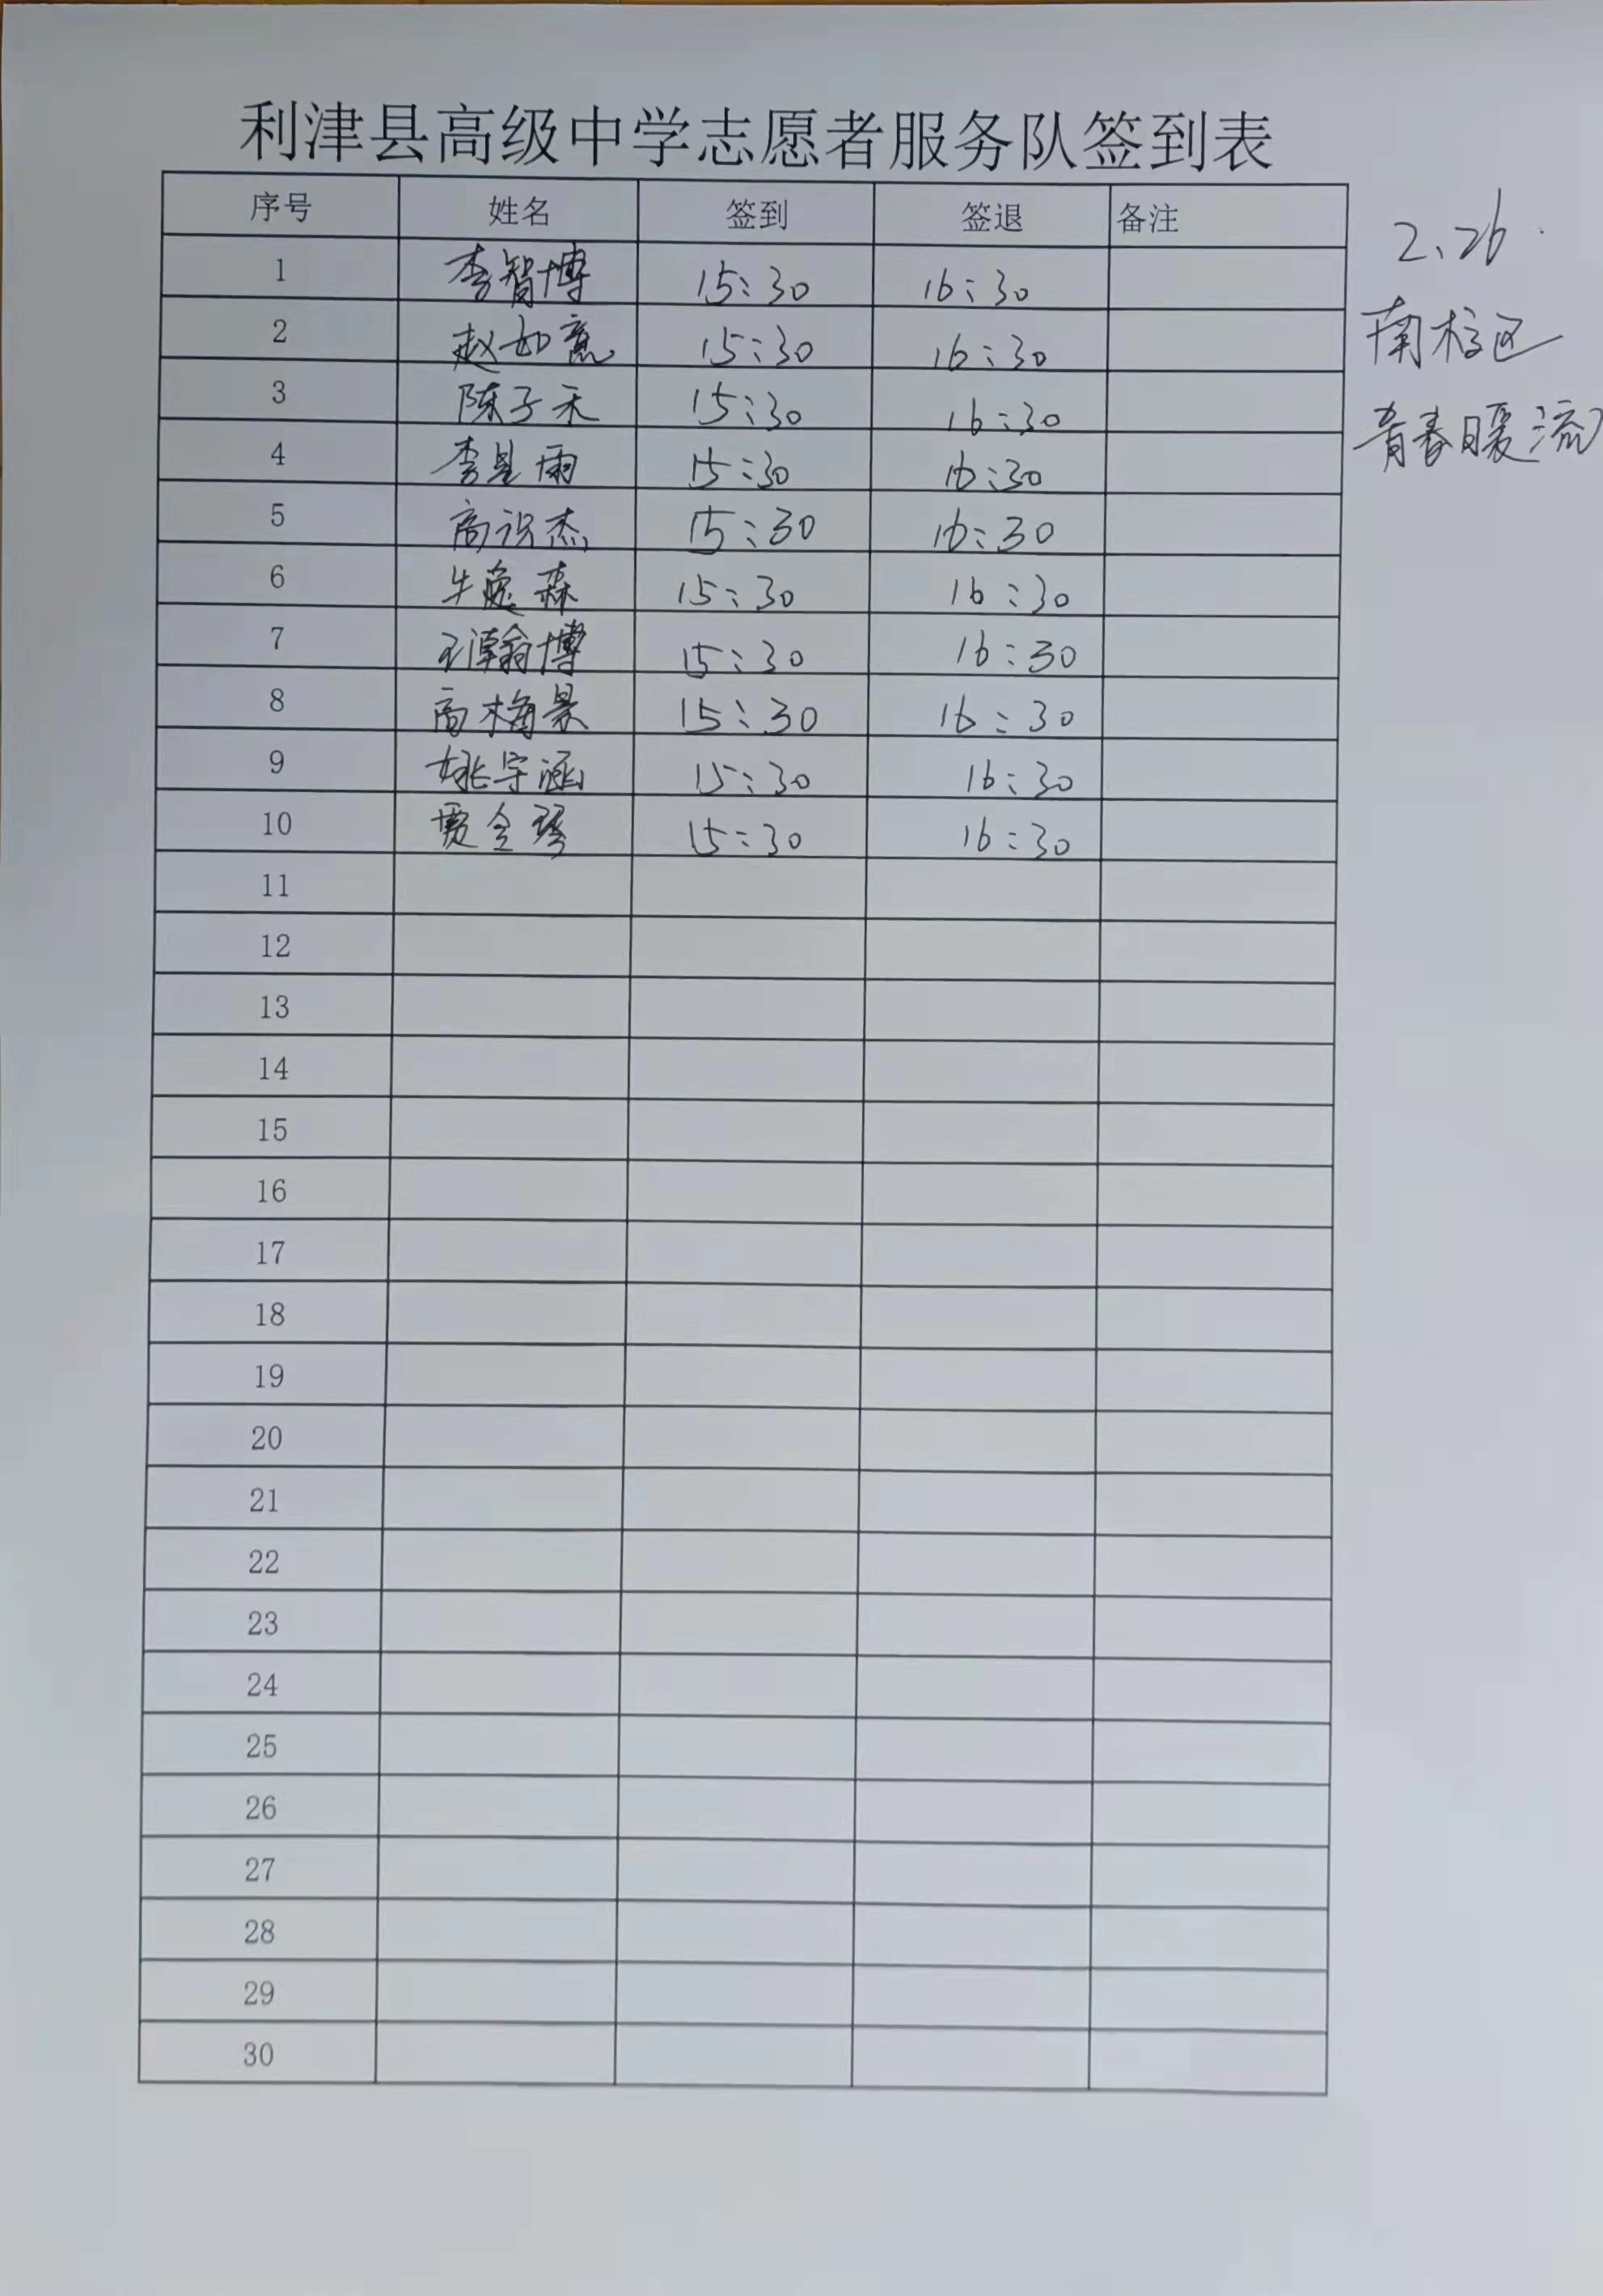 利津县高级中学志愿者服务队签到表
序号 姓名 签到 签退 备注
1 李智博 15:30 16:30
2 赵如意 15:30 16:30
3 陈子禾 15:30 16:30
4 李星雨 15:30 16:30
5 高识杰 15:30 16:30
6 牛 森 15:30 16:30
7 王瀚博 15:30 16:30
8 高梅景 15:30 16:30
9 姚宇涵 15:30 16:30
10 贾全琴 15:30 16:30
11
12
13
14
15
16
17
18
19
20
21
22
23
24
25
26
27
28
29
30
2、26
南校区
青春暖流